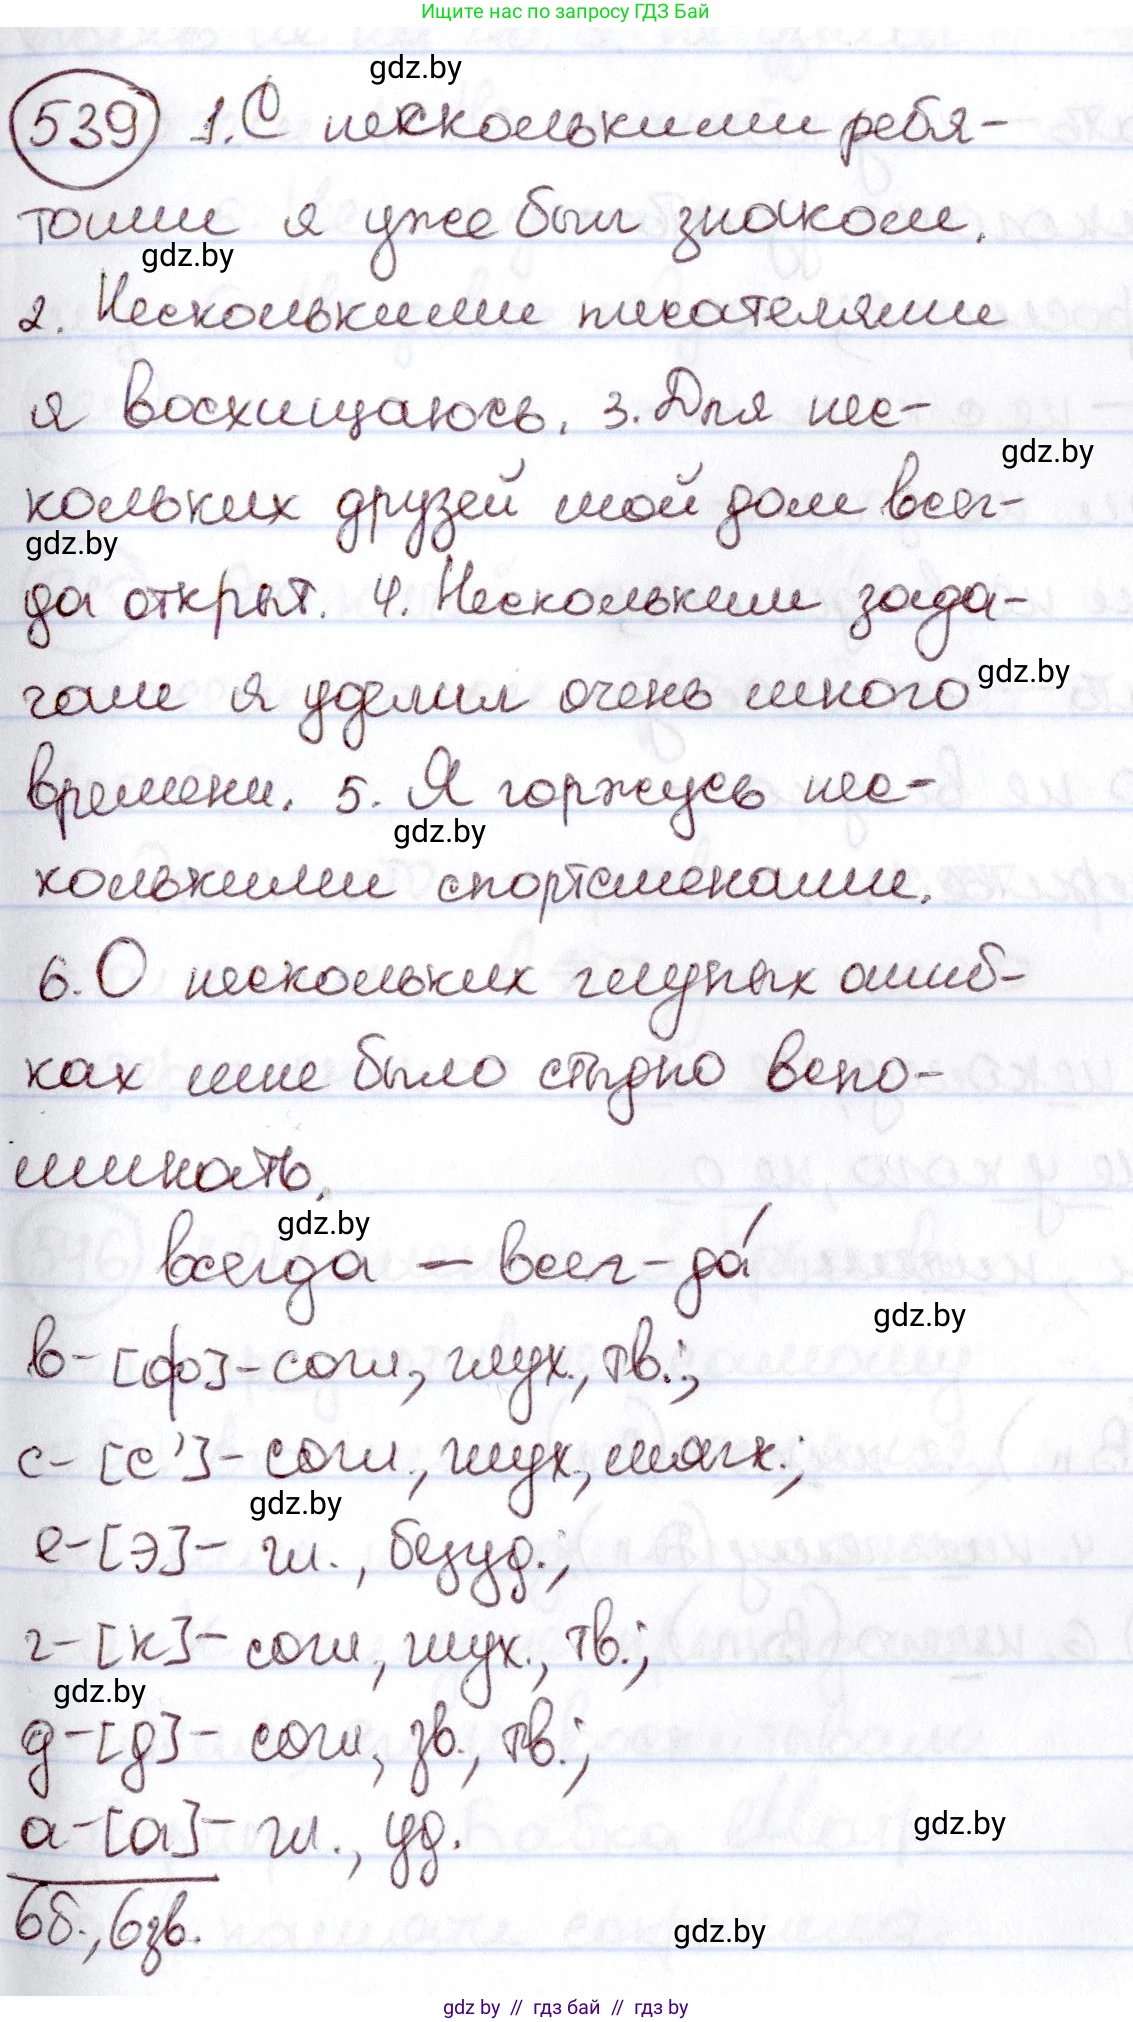 Ищите нас по запросу ГДЗ Бай
gdz.by
539 1. С несколькими ребя-
тами я уже был знаком.
gdz.by
2. Несколькими писателями
я восхищаюсь. 3. Для нес-
gdz.by
кольких друзей мой дом всег-
gdz.by
да открыт. 4. Нескольким зада-
чам я уделил очень много
gdz.by
времени. 5. Я горжусь нес-
gdz.by
колькими спортсменами.
6. О нескольких глупых ошиб-
ках мне было стыдно вспо-
минать.
gdz.by
всегда – всег-да́
gdz.by
в-[ф]-согл., глух., тв.;
с-[с']-согл., глух., мягк.;
gdz.by
е-[э]-гл., безуд.;
г-[к]-согл., глух., тв.;
gdz.by
д-[д]-согл., зв., тв.;
а-[а]-гл., уд.
gdz.by
6б., 6зв.
gdz.by
gdz by // гдз бай // гдз by